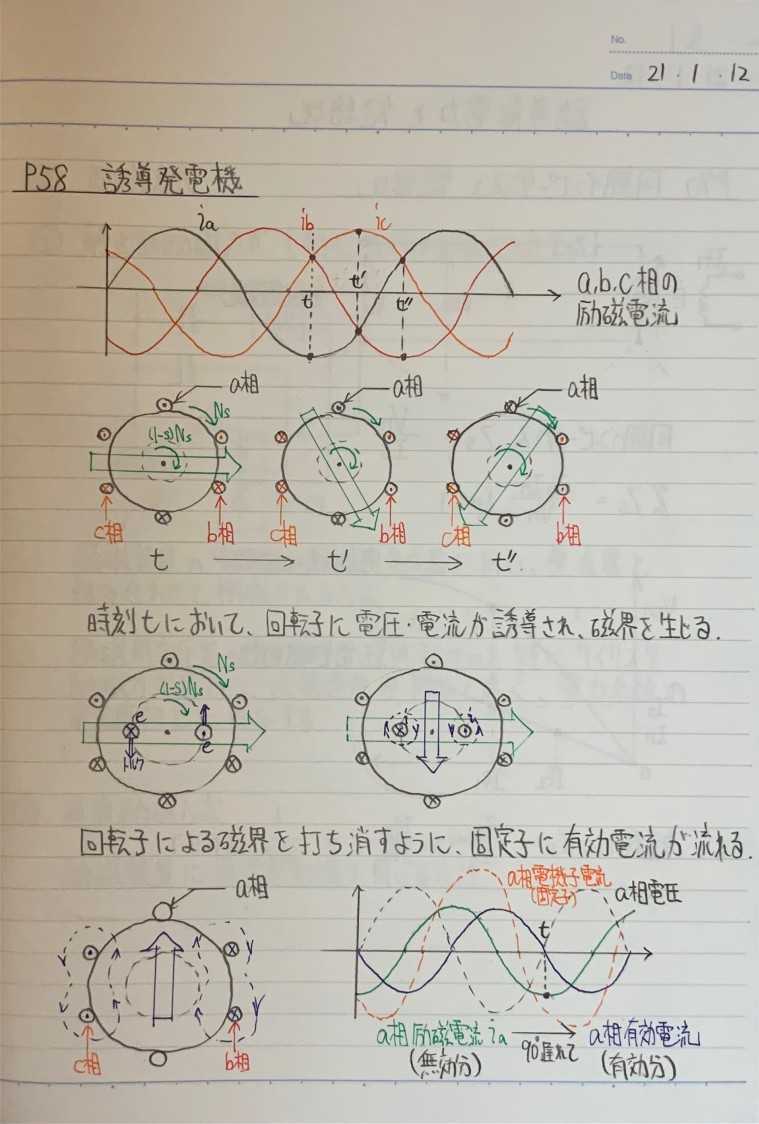 No.
Date 21・1・12
P58 誘導発電機
ia ib ic
t t' t''
a,b,c相の
励磁電流
a相 a相 a相
Ns
(1-s)Ns
c相 b相 c相 b相 c相 b相
t t' t''
時刻tにおいて、回転子に電圧・電流が誘導され、磁界を生じる.
Ns
(1-s)Ns
e i i
e
トルク
回転子による磁界を打ち消すように、固定子に有効電流が流れる.
a相
a相電機子電流
(固定子)
a相電圧
t
c相 b相
a相励磁電流ia 90°遅れて a相有効電流
(無効分) (有効分)